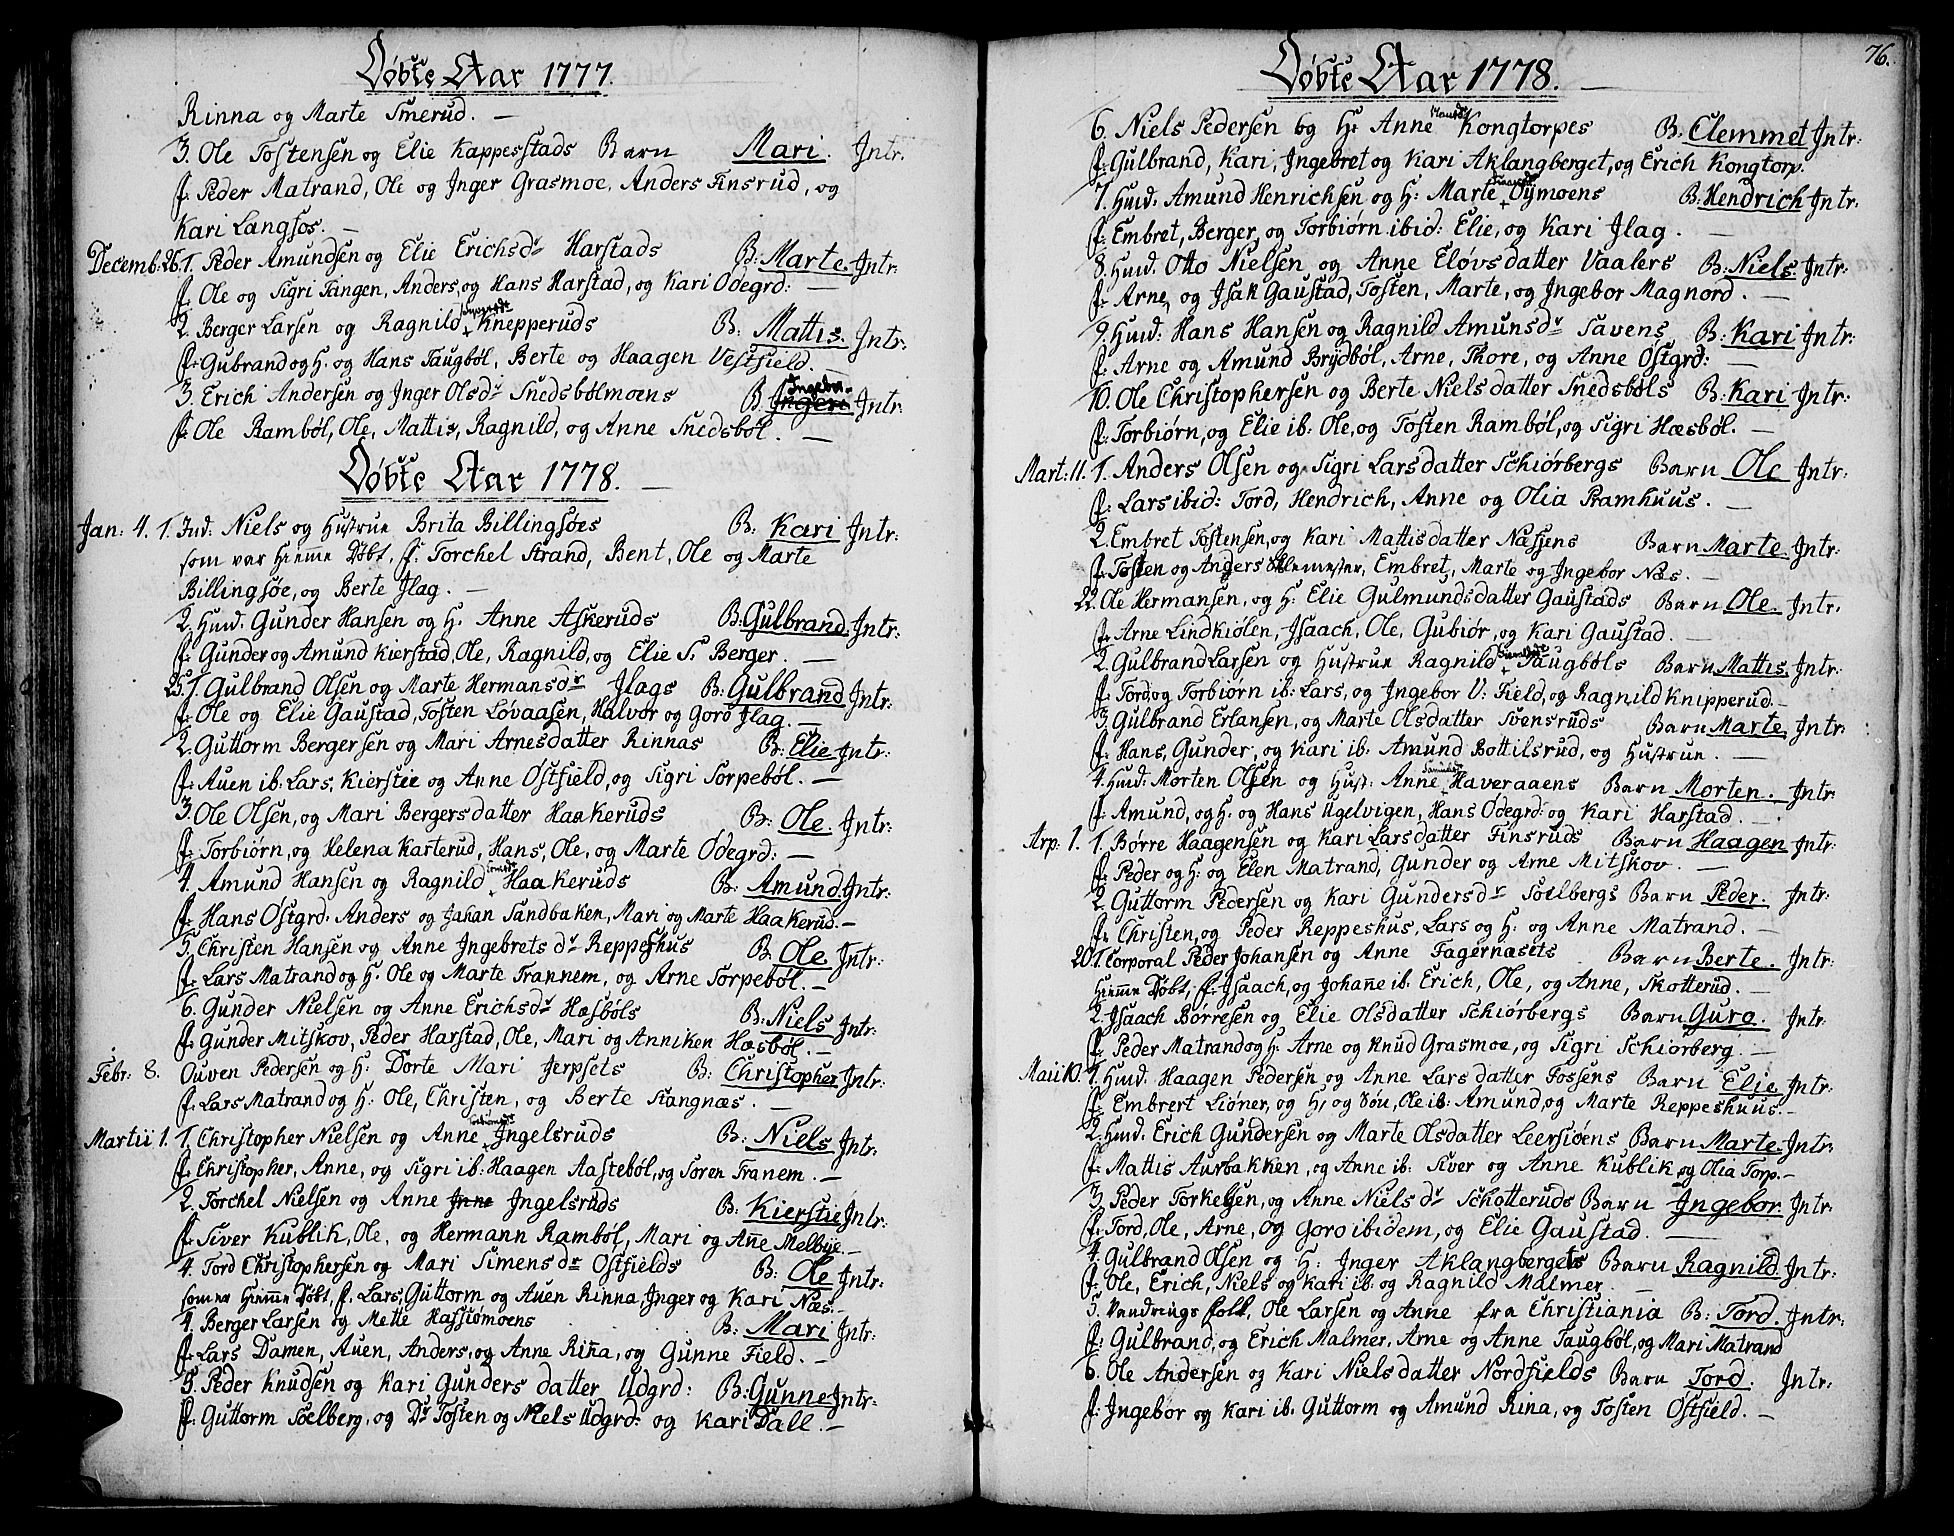 Døbte Aar 1777.
Rinna og Marte Smerud. —
3. Ole Tostensen og Elie Kappesstads Barn Mari. Intr.
f. Peder Matrand, Ole og Inger Grasmoe, Anders Finsrud, og
Kari Langsos. —
Decemb: 26. 1. Peder Amundsen og Elie Erichsdr Harstads B: Marte. Intr:
f. Ole og Sigri Tangen, Anders, og Hans Harstad, og Kari Ødegrd: —
2. Berger Larsen og Ragnild Knepperuds B: Mattis. Intr:
f. Gubrand og H. og Hans Taugbøl, Berte og Haagen Vestfield.
3. Erich Andersen og Inger Olsdr Snedsbølmoens B: Inger Ingebor Intr:
f. Ole Rambøl, Ole, Mattis, Ragnild, og Anne Snedsbøl. —
Døbte Aar 1778. —
Jan: 4. 1. Ind. Niels og Hustrue Brita Billingsøes B: Kari Intr:
som var Hiemme Døbt, f. Torchel Strand, Bent, Ole og Marte
Billingsøe, og Berte Ilag. —
2. Husd. Gunder Hansen og H. Anne Askeruds B: Gulbrand. Intr:
f. Gunder og Amund Kierstad, Ole, Ragnild, og Elie S. Berger. —
25. 1. Gulbrand Olsen og Marte Hermansdr Ilags B: Gulbrand Intr:
f. Ole og Elie Gaustad, Tosten Løvaasen, Halvor og Goro Ilag. —
2. Guttorm Bergersen og Mari Arnesdatter Rinnas B: Elie Intr:
f. Auen ib: Lars, Kierstie og Anne Østfield, og Sigri Torpebøl. —
3. Ole Olsen, og Mari Bergersdatter Haakeruds B: Ole. Intr:
f. Torbiørn, og Helena Karterud, Hans, Ole, og Marte Ødegrd: —
4. Amund Hansen og Ragnild Haakeruds B: Amund. Intr:
f. Hans Østgrd: Anders og Johan Sandbaken, Mari og Marte Haakerud. —
5. Christen Hansen og Anne Ingebretsdr Reppeshus B. Ole Intr:
f. Lars Matrand og H. Ole og Marte Trannem, og Arne Torpebøl. —
6. Gunder Nielsen og Anne Erichsdr Hæsbøls B: Niels Intr:
f. Gunder Mitskov, Peder Harstad, Ole, Mari og Anniken Hæsbøl. —
Febr: 8. Ouven Pedersen og H: Dorte Mari Jerpsets B: Christopher Intr:
f. Lars Matrand og H: Ole, Christen, og Berte Stangnæs. —
Martii 1. 1. Christopher Nielsen og Anne Ingelsruds B: Niels Intr:
f. Christopher, Anne, og Sigri ib: Haagen Aastebøl, og Søren Tranem. —
2. Torchel Nielsen og Anne Inne Ingelsruds B: Kierstie Intr:
f. Siver Kublik, Ole, og Hermann Rambøl, Mari og Añe Melbye. —
4. Tord Christophersen og Mari Simensdr Østfields B: Ole Intr:
som er Hiemme Døbt, f. Lars, Guttorm og Auen Rinna, Inger og Kari Næs. —
4. Berger Larsen og Mette Hassiømoens B: Mari Intr:
f. Lars Damen, Auen, Anders, og Anne Riña, og Gunne Field. —
5. Peder Knudsen og Kari Gunders datter Udgrd: B: Gunne Intr:
f. Guttorm Soelberg, og Dr Tosten og Niels Udgrd: og Kari Dall. —
76.
Døbte Aar 1778. —
6. Niels Pedersen og H: Anne Kongtorpes B. Clemmet Intr:
f. Gulbrand, Kari, Ingebret og Kari Aklangberget, og Erich Kongtorp.
7. Husd: Amund Henrichsen og H: Marte Øymoens B: Hendrich Intr:
f. Embret, Berger, og Torbiørn ibid: Elie, og Kari Ilag. —
8. Husd. Otto Nielsen og Anne Eløvsdatter Vaalers B: Niels. Intr:
f. Arne, og Isak Gaustad, Tosten, Marte, og Ingebor Magnord. —
9. Husd: Hans Hansen og Ragnild Amunsdr Savens B: Kari Intr:
f. Arne og Amund Brydbøl, Arne, Thore, og Anne Østgrd: —
10. Ole Christophersen og Berte Nielsdatter Snedsbøls B: Kari Intr:
f. Torbiørn, og Elie ib: Ole, og Tosten Rambøl, og Sigri Hæsbøl. —
Mart: 11. 1. Anders Olsen og Sigri Larsdatter Schiørbergs Barn Ole Intr:
f. Lars ibid: Tord, Hendrich, Anne og Olia Pramhuus. —
2. Embret Tostensen, og Kari Mattisdatter Næssens Barn Marte. Intr:
f. Tosten og Anders Klemester, Embret, Marte og Ingebor Næs. —
22. Ole Hermansen, og H: Elie Gulmundsdatter Gaustads Barn Ole. Intr.
f. Arne Lindkiølen, Isaach, Ole, Gubiør, og Kari Gaustad. —
2. Gulbrand Larsen og Hustrue Ragnild Taugbøls Barn Mattis. Intr:
f. Tord og Torbiørn ib: Lars, og Ingebor V: Field, og Ragnild Knipperud. —
3. Gulbrand Erlansen, og Marte Olsdatter Svensruds Barn Marte. Intr:
f. Hans, Gunder, og Kari ib: Amund Bottilsrud, og Hustrue. —
4. Husd: Morten Olsen og Hust: Anne Haveraaens Barn Morten. Intr:
f. Amund, og H. og Hans Ugelvigen, Hans Ødegrd: og Kari Harstad. —
Arp: 1. 1. Børre Haagensen og Kari Larsdatter Finsruds Barn Haagen Intr:
f. Peder og H: og Elen Matrand, Gunder og Arne Mitskov. —
2. Guttorm Pedersen og Kari Gundersdr Soelbergs Barn Peder. Intr:
f. Christen, og Peder Reppeshus, Lars og H: og Anne Matrand. —
20. 1. Corporal Peder Johansen og Anne Fagernæsets Barn Berte. Intr:
Hiemme Døbt, f. Isaach, og Johañe ib: Erich, Ole, og Anne, Skotterud. —
2. Isaach Børresen og Elie Olsdatter Schiørbergs Barn Guro. Intr:
f. Peder Matrand og H: Arne og Knud Grasmoe, og Sigri Schiørberg. —
Maii 10. 1. Husd. Haagen Pedersen og Anne Larsdatter Fossens Barn Elie Intr:
f. Embrert Liøner, og H, og Søn, Ole ib: Amund, og Marte Reppeshuus. —
2. Husd. Erich Gundersen og Marte Olsdatter Leersiøens Barn Marte. Intr:
f. Mattis Aurbakken, og Anne ib: Siver og Anne Kublik og Olia Torp. —
3. Peder Torkelsen, og Anne Nielsdr Schotteruds Barn Ingebor Intr:
f. Tord, Ole, Arne, og Goro ibidem, og Elie Gaustad. —
4. Gulbrand Olsen og H: Inger Aklangbergets Barn Ragnild. Intr:
f. Ole, Erich, Niels og Kari ib: og Ragnild Malmer. —
5. Vandrings folk, Ole Larsen og Anne fra Christiania B: Tord. Intr:
f. Gulbrand, og Erich Malmer, Arne og Anne Taugbøl, og Mari Matrand
6. Ole Andersen og Kari Nielsdatter Nordfields Barn Tord. Intr:
f. Ingebor og Kari ib: Guttorm og Amund Rina, og Tosten Østfield. —